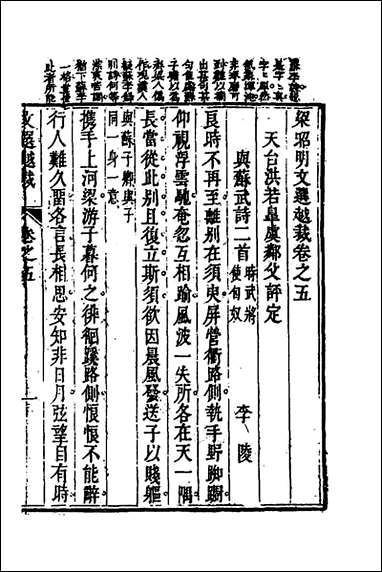 梁昭明文選越裁卷之五
天台洪若臯虞鄰父評定
與蘇武詩二首 時武將使匈奴 李陵
良時不再至離別在須臾屏營衢路側執手野踟蹰
仰視浮雲馳奄忽互相踰風波一失所各在天一隅
長當從此别且復立斯須欲因晨風發送子以賤軀
與蘇子願與子
同一身一意
攜手上河梁游子暮何之徘徊蹊路側悢悢不能辭
行人難久留各言長相思安知非日月弦望自有時
文選越裁 卷之五